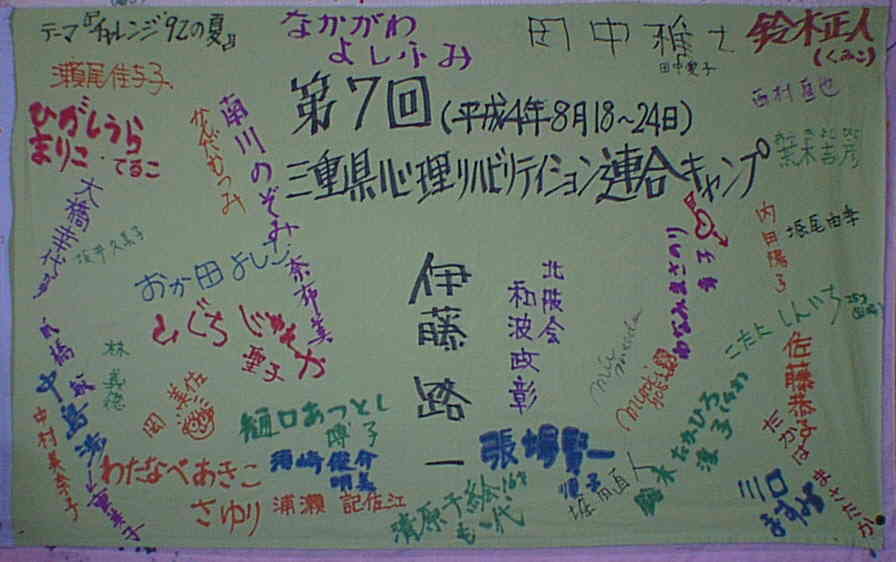 テーマ『チャレンジ'92の夏』
なかがわ
よしふみ
田中雅士
田中愛子
鈴木正人
(くみこ)
瀬尾佳与子
第7回(平成4年8月18〜24日)
三重県心理リハビリテイション連合キャンプ
西村直也
ひがしうら
まりこ・てるこ
南川のぞみ
奈布美
大橋幸代
おか田よしこ
堀尾由幸
内田陽子
伊藤路一
北勢会
和波政彰
わなみまさのり
幸子
ひぐちじゅんか
重子
こだましんいち
林義徳
岡美佐
佐藤恭子
樋口あつとし
中村美奈子
わたなべあきこ
さゆり
須崎俊介
明美
浦瀬記佐江
清原千絵
も一代
張場賢一
順子
堀田直人
鈴木たかひろ
川口
ますみ
まさたか